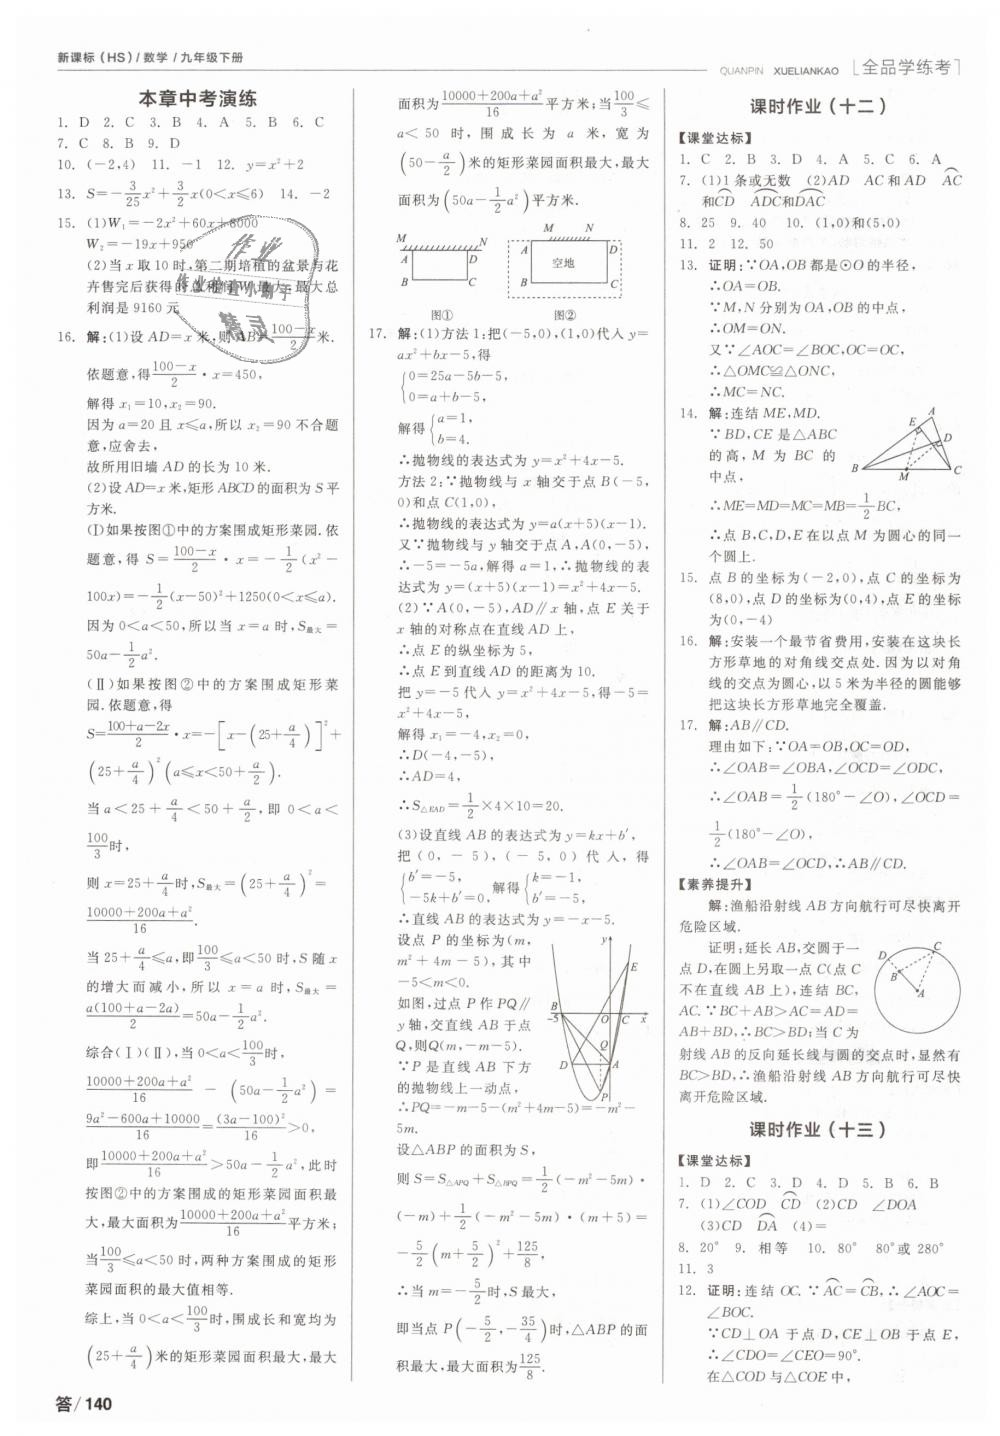 新课标(HS)/数学/九年级下册
QUANPIN XUELIANKAO 全品学练考
本章中考演练
1. D 2. C 3. B 4. A 5. B 6. C
7. C 8. B 9. D
10. (-2,4) 11. -1 12. y=x²+2
13. S=-3/25x²+3/2x(0<x≤6) 14. -2
15. (1)W₁=-2x²+60x+8000
W₂=-19x+950
(2)当x取10时,第二期培植的盆景与花
卉售完后获得的总利润W最大,最大总
利润是9160元
16. 解:(1)设AD=x米,则AB=(100-x)/2米.
依题意,得(100-x)/2·x=450,
解得x₁=10,x₂=90.
因为a=20且x≤a,所以x₂=90不合题
意,应舍去,
故所用旧墙AD的长为10米.
(2)设AD=x米,矩形ABCD的面积为S平
方米.
(Ⅰ)如果按图①中的方案围成矩形菜园.依
题意,得S=(100-x)/2·x=-1/2(x²-
100x)=-1/2(x-50)²+1250(0<x≤a).
因为0<a<50,所以当x=a时,S最大=
50a-1/2a².
(Ⅱ)如果按图②中的方案围成矩形菜
园.依题意,得
S=(100+a-2x)/2·x=-[x-(25+a/4)]²+
(25+a/4)²(a≤x<50+a/2).
当a<25+a/4<50+a/2,即0<a<
100/3时,
则x=25+a/4时,S最大=(25+a/4)²=
(10000+200a+a²)/16.
当25+a/4≤a,即100/3≤a<50时,S随x
的增大而减小,所以x=a时,S最大=
a(100+a-2a)/2=50a-1/2a².
综合(Ⅰ)(Ⅱ),当0<a<100/3时,
(10000+200a+a²)/16-(50a-1/2a²)=
(9a²-600a+10000)/16=(3a-100)²/16>0,
即(10000+200a+a²)/16>50a-1/2a²,此时
按图②中的方案围成的矩形菜园面积最
大,最大面积为(10000+200a+a²)/16平方米;
当100/3≤a<50时,两种方案围成的矩形
菜园面积的最大值相等.
综上,当0<a<100/3时,围成长和宽均为
(25+a/4)米的矩形菜园面积最大,最大
面积为(10000+200a+a²)/16平方米;当100/3≤
a<50时,围成长为a米,宽为
(50-a/2)米的矩形菜园面积最大,最大
面积为(50a-1/2a²)平方米.
M N A D B C 图①
M N A D 空地 B C 图②
17. 解:(1)方法1:把(-5,0),(1,0)代入y=
ax²+bx-5,得
{0=25a-5b-5,
0=a+b-5,
解得{a=1,
b=4.
∴抛物线的表达式为y=x²+4x-5.
方法2:∵抛物线与x轴交于点B(-5,
0)和点C(1,0),
∴抛物线的表达式为y=a(x+5)(x-1).
又∵抛物线与y轴交于点A,A(0,-5),
∴-5=-5a,解得a=1,∴抛物线的表
达式为y=(x+5)(x-1)=x²+4x-5.
(2)∵A(0,-5),AD∥x轴,点E关于
x轴的对称点在直线AD上,
∴点E的纵坐标为5,
∴点E到直线AD的距离为10.
把y=-5代入y=x²+4x-5,得-5=
x²+4x-5,
解得x₁=-4,x₂=0,
∴D(-4,-5),
∴AD=4,
∴S△EAD=1/2×4×10=20.
(3)设直线AB的表达式为y=kx+b′,
把(0,-5),(-5,0)代入,得
{b′=-5,
-5k+b′=0,解得{k=-1,
b′=-5,
∴直线AB的表达式为y=-x-5.
设点P的坐标为(m,
m²+4m-5),其中
-5<m<0.
如图,过点P作PQ∥
y轴,交直线AB于点
Q,则Q(m,-m-5).
∵P是直线AB下方
的抛物线上一动点,
y E B -5 O C x Q D A P
∴PQ=-m-5-(m²+4m-5)=-m²-
5m.
设△ABP的面积为S,
则S=S△APQ+S△BPQ=1/2(-m²-5m)·
(-m)+1/2(-m²-5m)·(m+5)=
-5/2(m+5/2)²+125/8,
∴当m=-5/2时,S最大,
即当点P(-5/2,-35/4)时,△ABP的面
积最大,最大面积为125/8.
课时作业(十二)
【课堂达标】
1. C 2. B 3. D 4. A 5. C 6. A
7. (1)1条或无数 (2)AD AC和AD A͡C
和C͡D A͡DC和D͡AC
8. 25 9. 40 10. (1,0)和(5,0)
11. 2 12. 50
13. 证明:∵OA,OB都是⊙O的半径,
∴OA=OB.
∵M,N分别为OA,OB的中点,
∴OM=ON.
又∵∠AOC=∠BOC,OC=OC,
∴△OMC≌△ONC,
∴MC=NC.
14. 解:连结ME,MD.
∵BD,CE是△ABC
的高,M为BC的
中点,
A E D B M C
∴ME=MD=MC=MB=1/2BC,
∴点B,C,D,E在以点M为圆心的同一
个圆上.
15. 点B的坐标为(-2,0),点C的坐标为
(8,0),点D的坐标为(0,4),点E的坐标
为(0,-4)
16. 解:安装一个最节省费用,安装在这块长
方形草地的对角线交点处.因为以对角
线的交点为圆心,以5米为半径的圆能够
把这块长方形草地完全覆盖.
17. 解:AB∥CD.
理由如下:∵OA=OB,OC=OD,
∴∠OAB=∠OBA,∠OCD=∠ODC,
∴∠OAB=1/2(180°-∠O),∠OCD=
1/2(180°-∠O),
∴∠OAB=∠OCD,∴AB∥CD.
【素养提升】
解:渔船沿射线AB方向航行可尽快离开
危险区域.
证明:延长AB,交圆于一
点D,在圆上另取一点C(点C
不在直线AB上),连结BC,
AC.∵BC+AB>AC=AD=
AB+BD,∴BC>BD;当C为
D C B A
射线AB的反向延长线与圆的交点时,显然有
BC>BD,∴渔船沿射线AB方向航行可尽快
离开危险区域.
课时作业(十三)
【课堂达标】
1. D 2. C 3. D 4. D 5. B 6. B
7. (1)∠COD C͡D (2)CD ∠DOA
(3)CD D͡A (4)=
8. 20° 9. 相等 10. 80° 80°或280°
11. 3
12. 证明:连结OC.∵A͡C=C͡B,∴∠AOC=
∠BOC.
∵CD⊥OA于点D,CE⊥OB于点E,
∴∠CDO=∠CEO=90°.
在△COD与△COE中,
答/140